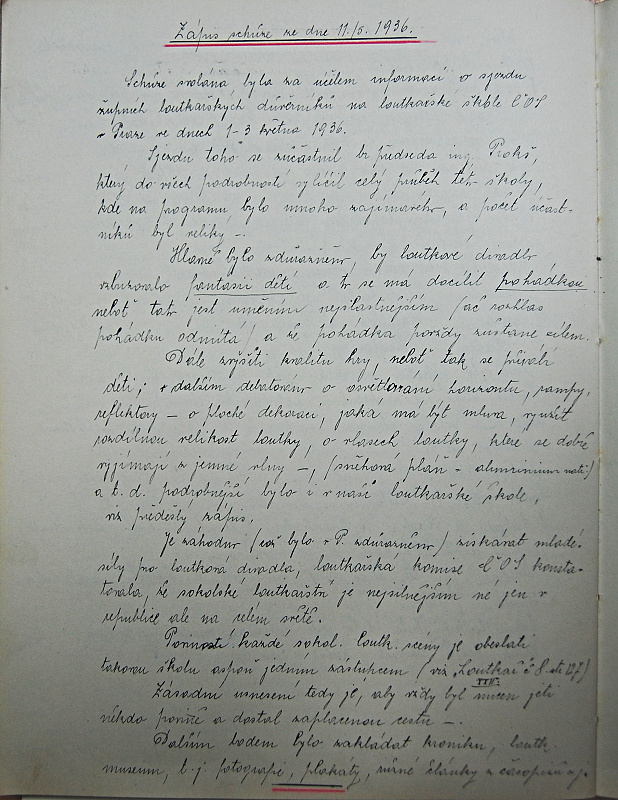 Zápis schůze ze dne 11./5. 1936.
Schůze svolána byla za účelem informací o sjezdu
župních loutkářských důvěrníků na loutkářské škole ČOS
v Praze ve dnech 1-3 května 1936.
Sjezdu toho se zúčastnil br. předseda ing. Prokš,
který do všech podrobností vylíčil celý průběh této školy,
kde na programu bylo mnoho zajímavého, a počet účast-
níků byl veliký –.
Hlavně bylo zdůrazněno, by loutkové divadlo
vzbuzovalo fantasii dětí a to se má docílit pohádkou
neboť tato jest uměním nejšťastnějším (ač rozhlas
pohádku odmítá) a že pohádka povždy zůstane cílem.
Dále zvýšiti kvalitu hry, neboť tak se převádí
děti; v dalším debatováno o osvětlování horizontu, rampy,
reflektory – o ploché dekoraci, jaká má být mluva, využít
rozdílnou velikost loutky, o vlasech loutky, které se dobře
vyjímají z jemné vlny –, (sněhová pláň – aluminium)
a t. d. podrobnější bylo i v naší loutkářské škole,
viz předešlý zápis,
Je záhodno (což bylo v P. zdůrazněno) získávat mladé
síly pro loutková divadla, loutkářská komise ČOS konsta-
tovala, že sokolské loutkářství je nejsilnějším né jen v
republice ale na celém světě.
Povinností každé sokol. loutk. scény je obeslati
takovou školu aspoň jedním zástupcem (viz „Loutkář č 8. str. 127)
VIII.
Zásadní usnesení tedy je, aby vždy byl nucen jeti
někdo povinně a dostal zaplacenou cestu –.
Dalším bodem bylo zakládat kroniku, loutk.
museum, t. j. fotografie, plakáty, různé články z časopisů a j.